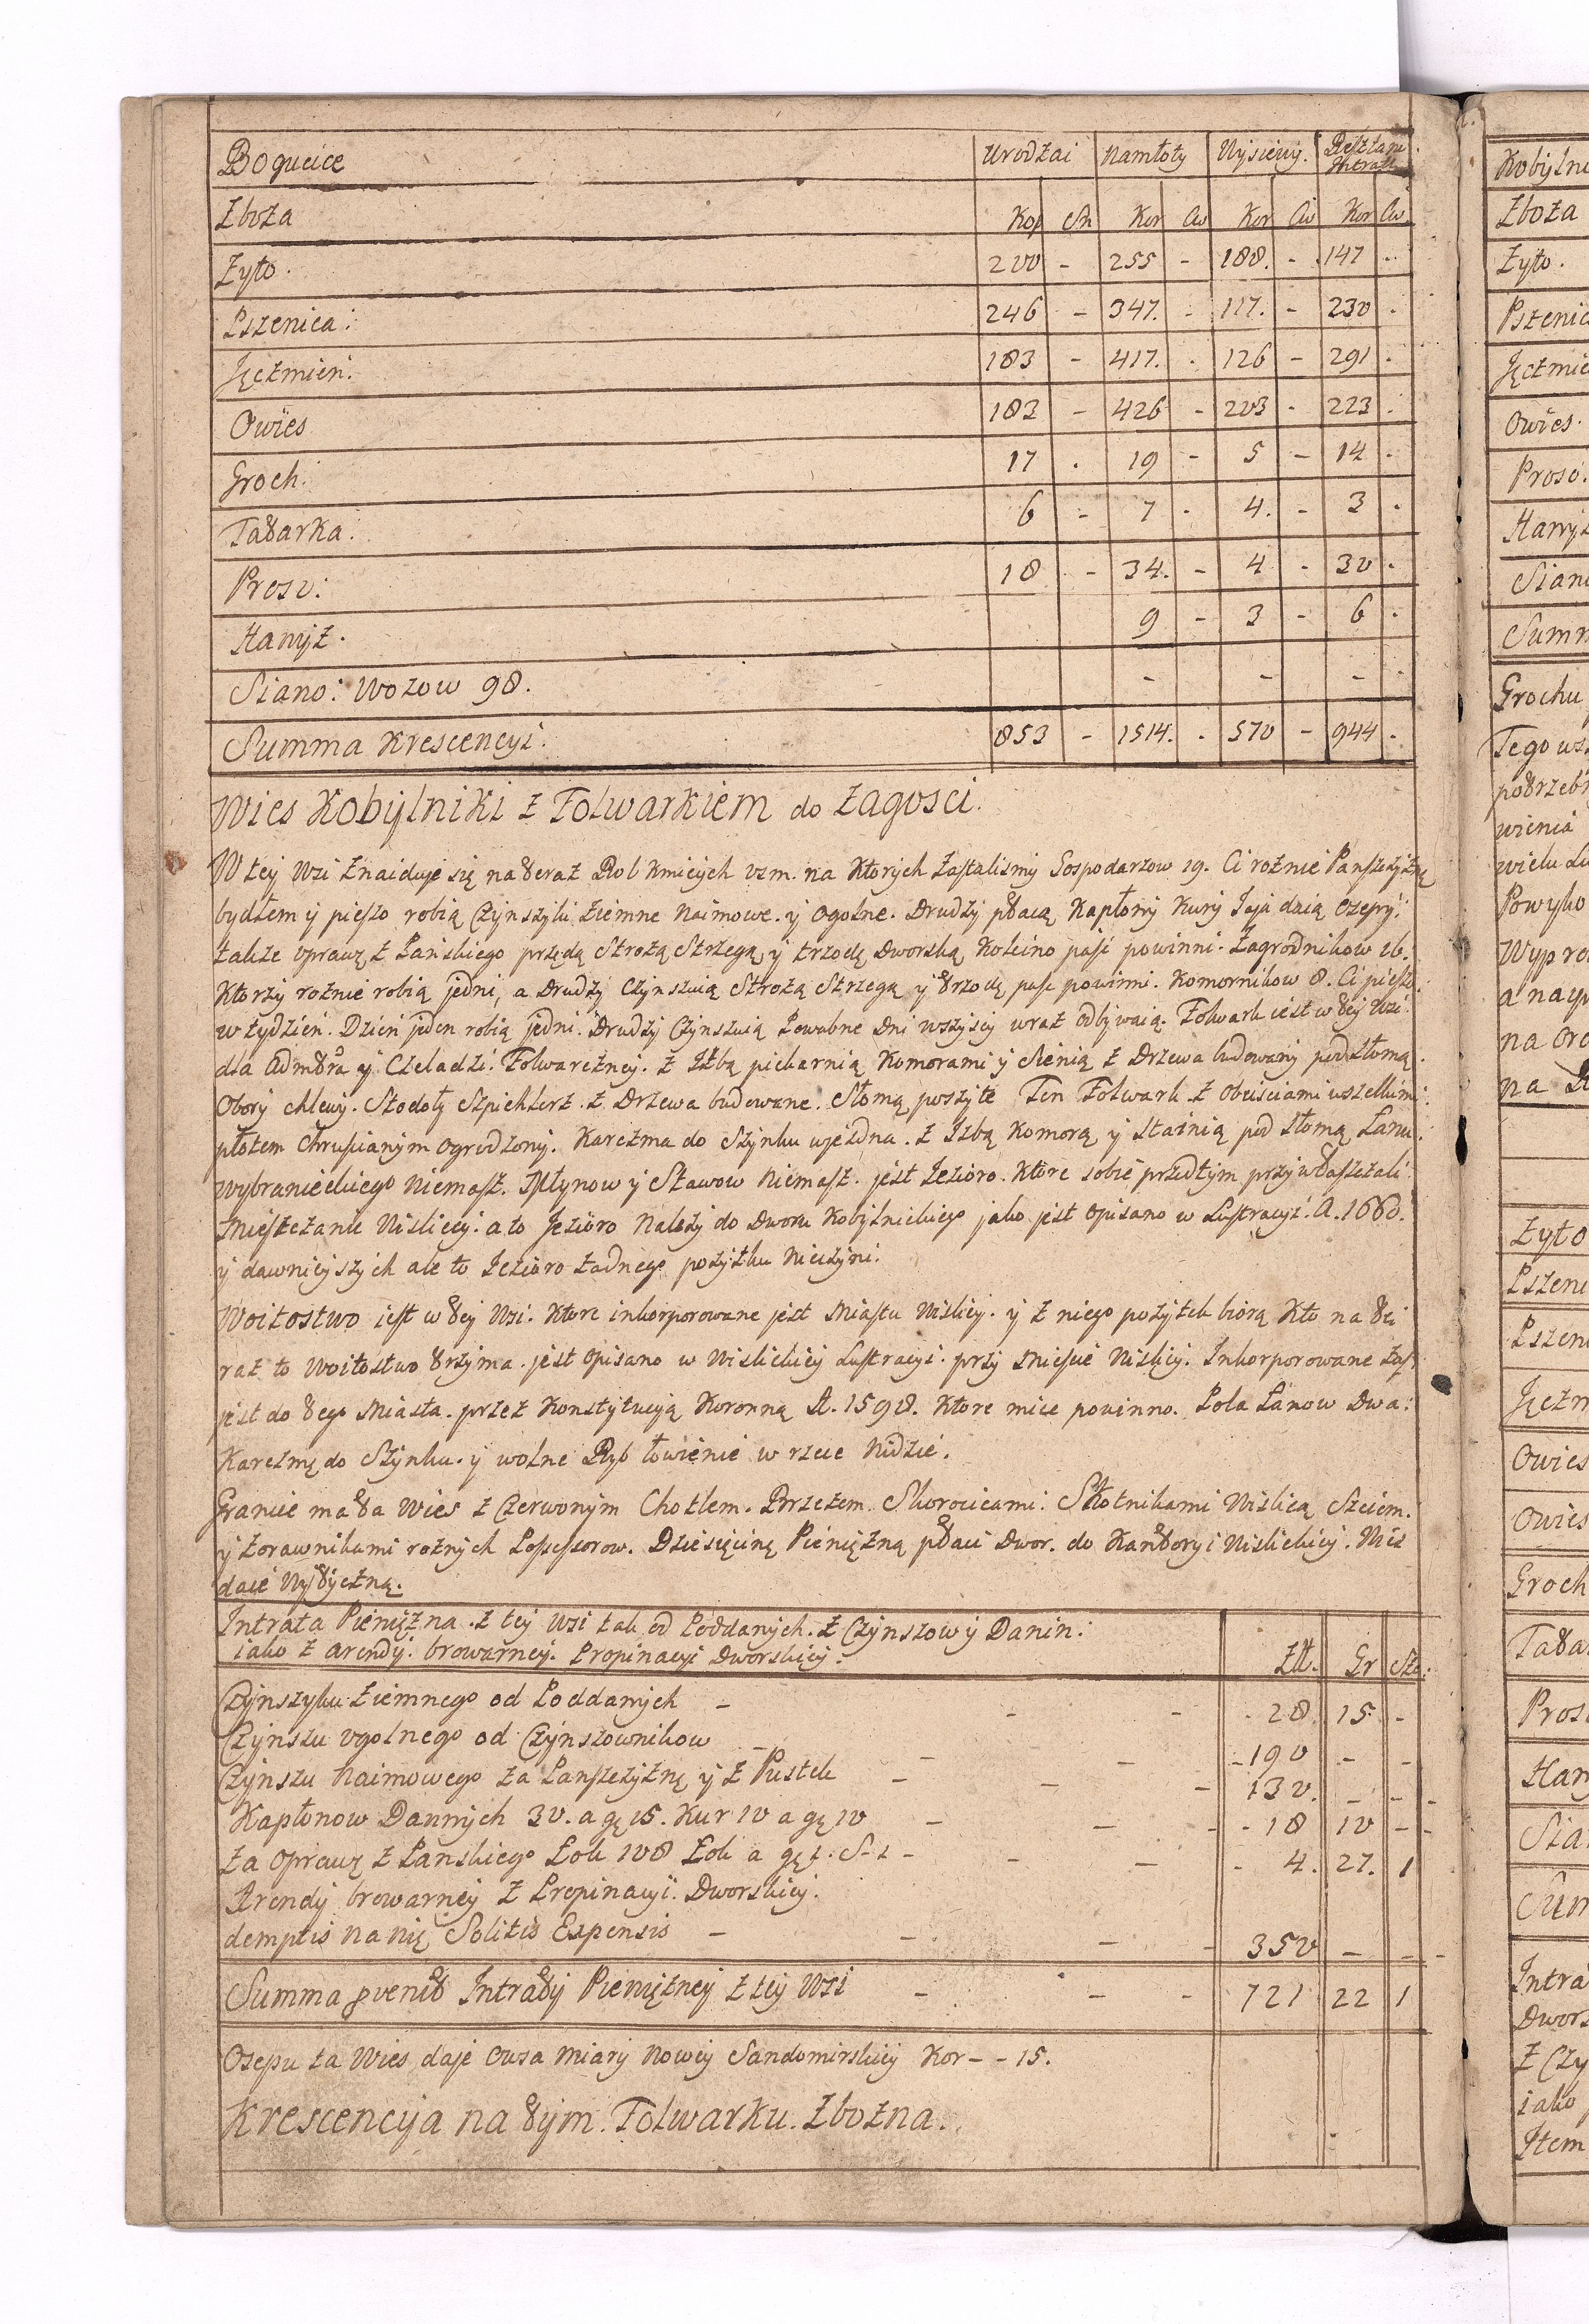 Bogucice Urodzai Namłoty Wysiewy. Resztani Intrati
Zboza Kop Sn Kor Cw Kor Cw Kor Cw.
Zyto. 200 - 255 - 108. - 147 -
Pszenica: 246 - 347. - 117. - 230 .
Jęczmien: 183 - 417. . 126 - 291 .
Owies 183 - 426 - 203 - 223 .
Groch: 17 . 19 - 5 - 14 .
Tatarka: 6 - 7 . 4. - 3 .
Proso: 18 - 34. - 4 - 30 .
Hanyz. 9 - 3 - 6 .
Siano: Wozow 98. - - - .
Summa Krescencyi. 853 - 1514. . 570 - 944 .
Wies Kobylniki z Folwarkiem do Zagosci.
W tey Wsi znaiduje się na teraz Rol Kmicych osm. na Ktorych zastalismy Gospodarzow 19. Ci roznie Panszczyznę
bydłem y pieszo robią Czynszyki ziemne Naimowe. y Ogolne. Drudzy płacą Kapłony Kury Jaja daią Ozepy:
takze oprawę z Panskiego przędą Strozą Strzegą y trzodę Dworską Koleino paść powinni. Zagrodnikow 16:
Ktorzy roznie robią jedni, a Drudzy Czynszuią Strozą Strzegą y trzodę paść powinni. Komornikow 8. Ci pieszo
w tydzien. Dzien jeden robią jedni. Drudzy Czynszuią Powabne Dni wszyscy wraz odbywaią. Folwark iest w tey Wsi
dla Admtra y Czeladzi. Folwarczney. z Izbą piekarnią Komorami y Sienią z Drzewa budowany pod słomą.
Obory chlewy. Stodoły Szpichlerz. z Drzewa budowane. Słomą poszyte Ten Folwark z Obeisciami wszelkimi
płotem chruscianym ogrodzony. Karczma do Szynku wjezdna. z Izbą Komorą y Stainią pod słomą Łanu
wybranieckiego Niemasz. Młynow y Stawow Niemasz. jest Jezioro. Ktore sobie przedtym przywłaszczali
Mieszczanie Wislicy: a to Jezioro Nalezy do Dworu Kobylnickiego jako jest Opisano w Lustracyi: A. 1660.
y dawnieyszych ale to Jezioro zadnego pozytku Nieczyni:
Woitostwo iest w tey Wsi. Ktore inkorporowane jest Miastu Wislicy. y z niego pozytek biorą Kto na te
raz to Woitostwo trzyma. jest Opisano w Wislickiey Lustracyi. przy Miescie Wislicy. Inkorporowane zas
jest do tego Miasta. przez Konstytucyą Koronną A. 1598. Ktore miec powinno. Pola Łanow Dwa:
Karczmę do Szynku. y wolne Ryb łowienie w rzece Nidzie.
Granice ma ta Wies z Czerwonym Chotlem. Brzezem. Skorocicami. Skotnikami Wislicą Szczem.
y Zorawnikami roznych Possessorow. Dziesięcinę Pieniężną płaci Dwor. do Kantoryi Wislickiey. Wies
daie Wytyczną.
Intrata Pieniężna. z tey Wsi tak od Poddanych. z Czynszow y Danin:
iako z arendy. browarney. Propinacyi Dworskiey. Złł. Gr Sze:
Czynszyku ziemnego od Poddanych - - - - 28. 15. -
Czynszu ogolnego od Czynszownikow - - - - 190 - -
Czynszu Naimowego za Panszczyznę y z Pustek - - - 130. - -
Kapłonow Dannych 30. a gę 15. Kur 10 a gę 10 - - - 18 10 -
za Oprawę z Panskiego Łok 108 Łok a gę 1. S-1 - - - 4. 27. 1
Arendy browarney z Propinacyi. Dworskiey.
demptis na nię Solitis Expensis - - - - 350 - -
Summa provent Intraty Pieniężney z tey Wsi - - - 721 22 1
Osepu ta Wies daje Owsa Miary Nowey Sandomirskiey Kor - - 15.
Krescencyja na tym. Folwarku. Zbozna.